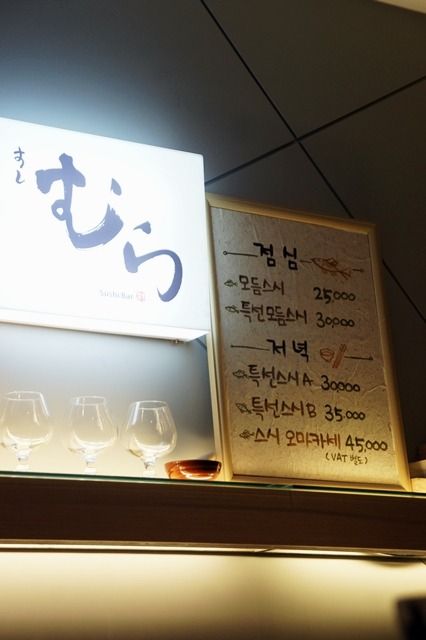 すし
むら
Sushi Bar
점심
모듬스시 25,000
특선모듬스시 30,000
저녁
특선스시 A 30,000
특선스시 B 35,000
스시 오마카세 45,000
(VAT 별도)